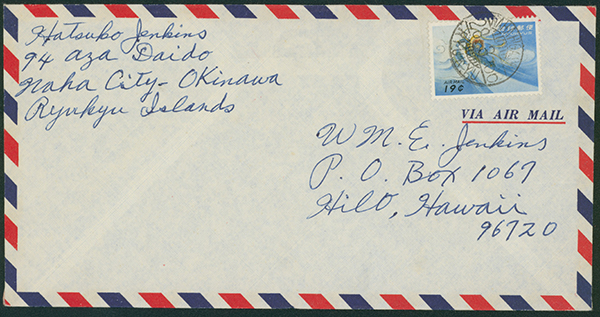 Hatsuko Jenkins
94 aza Daido
Naha City - Okinawa
Ryukyu Islands
AIRMAIL
19¢
VIA AIR MAIL
WM. E. Jenkins
P. O. Box 1067
Hilo, Hawaii
96720